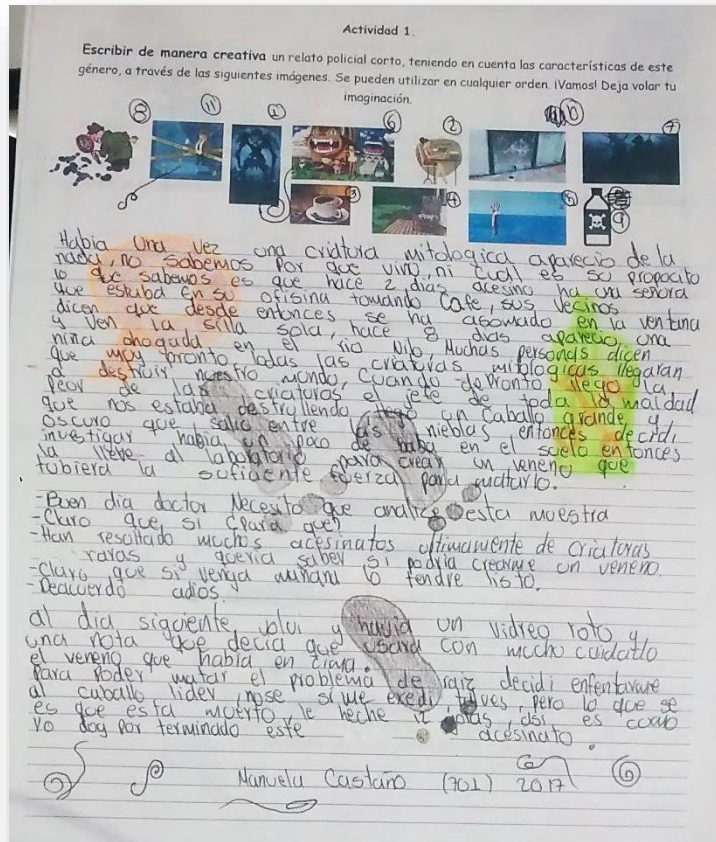 Actividad 1.
Escribir de manera creativa un relato policial corto, teniendo en cuenta las características de este
género, a través de las siguientes imágenes. Se pueden utilizar en cualquier orden. ¡Vamos! Deja volar tu
imaginación.
8 11 1 6 2 10 7
3 4 5 9
Habia una vez una criatura mitologica aparecio de la
nada, no sabemos por que vino, ni cual es su propocito
lo que sabemos es que hace 2 dias acesino ha una señora
que estaba en su ofisina tomando cafe, sus vecinos
dicen que desde entonces se ha asomado en la ventana
y ven la silla sola, hace 8 dias aparecio una
niña ahogada en el rio Nilo, Muchas personas dicen
que muy pronto todas las criaturas mitologicas llegaran
a destruir nuestro mundo, Cuando de pronto llego la
peor de las criaturas el jefe de toda la maldad
que nos estaba destrullendo, llego un Caballo grande y
oscuro que salia entre las nieblas entonces decidi
investigar habia un poco de baba en el suelo entonces
la lleve al laboratorio para crear un veneno que
tubiera la suficiente fuerza para matarlo.
-Buen dia doctor Necesito que analize esta muestra
-Claro que si ¿para que?
-Han resultado muchos acesinatos ultimamente de criaturas
raras y queria saber si podria crearme un veneno.
-Claro que si venga mañana lo tendre listo.
-Deacuerdo adios.
al dia siguiente volvi y havia un vidreo roto y
una nota que decia que usara con mucho cuidado
el veneno que habia en cima.
Para poder matar el problema de raiz decidi enfentarme
al caballo lider, nose si me exedi talves, pero lo que se
es que esta muerto, le heche 12 gotas, asi es como
yo doy por terminado este acesinato.
Manuela Castaño (701) 2017